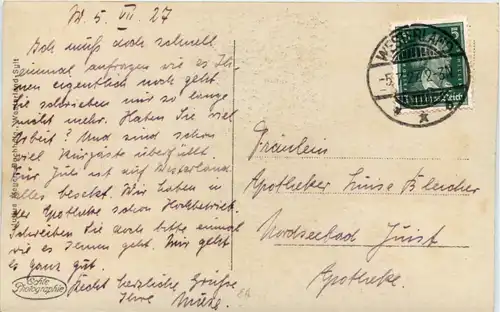 W. 5. VII. 27
Ich muß doch schnell
einmal anfragen wie es Ih-
nen eigentlich noch geht.
Sie schrieben mir so lange
nicht mehr. Haben Sie viel
Arbeit? Und sind schon
viel Kurgäste
Für Juli ist auf Westerland
alles besetzt. Wir haben in
der Apotheke schon Hochbetrieb.
Schreiben Sie doch bitte einmal
wie es Ihnen geht. Mir geht
es ganz gut.
Recht herzliche Grüße
Ihre
Fräulein
Apotheker Luise Bleicher
Nordseebad Juist
Apotheke.
WESTERLAND
5
Deutsches Reich
Echte
Photographie
Westerland-Sylt